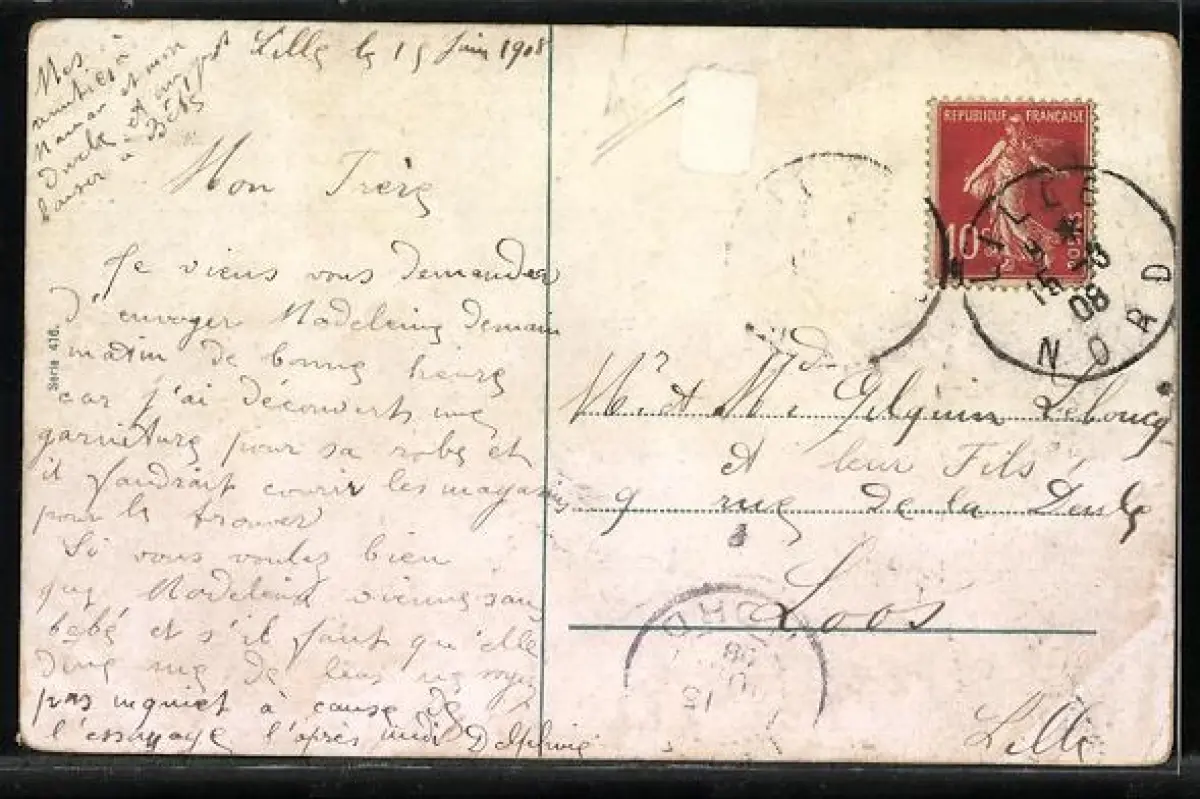 Lille le 15 Juin 1908
Mes
amitiés à
Maman et mon
oncle et un gros
baiser à Bébé
Mon Frère
Je viens vous demander
d'envoyer Madeleine demain
matin de bonne heure
car j'ai découverts une
garniture pour sa robe et
il faudrait courir les magasins
pour la trouver
Si vous voulez bien
que Madeleine vienne sans
bébé et s'il faut qu'elle
dîne rue de ne soyez
pas inquiet à cause de
l'essayage l'après midi Delphine
Serie 416.
REPUBLIQUE FRANÇAISE
10 c
POSTES
LILLE
15 - 6
08
NORD
Mr et Mme Gilquin Leboucq
et leur Fils
9 rue de la Deule
Loos
Lille